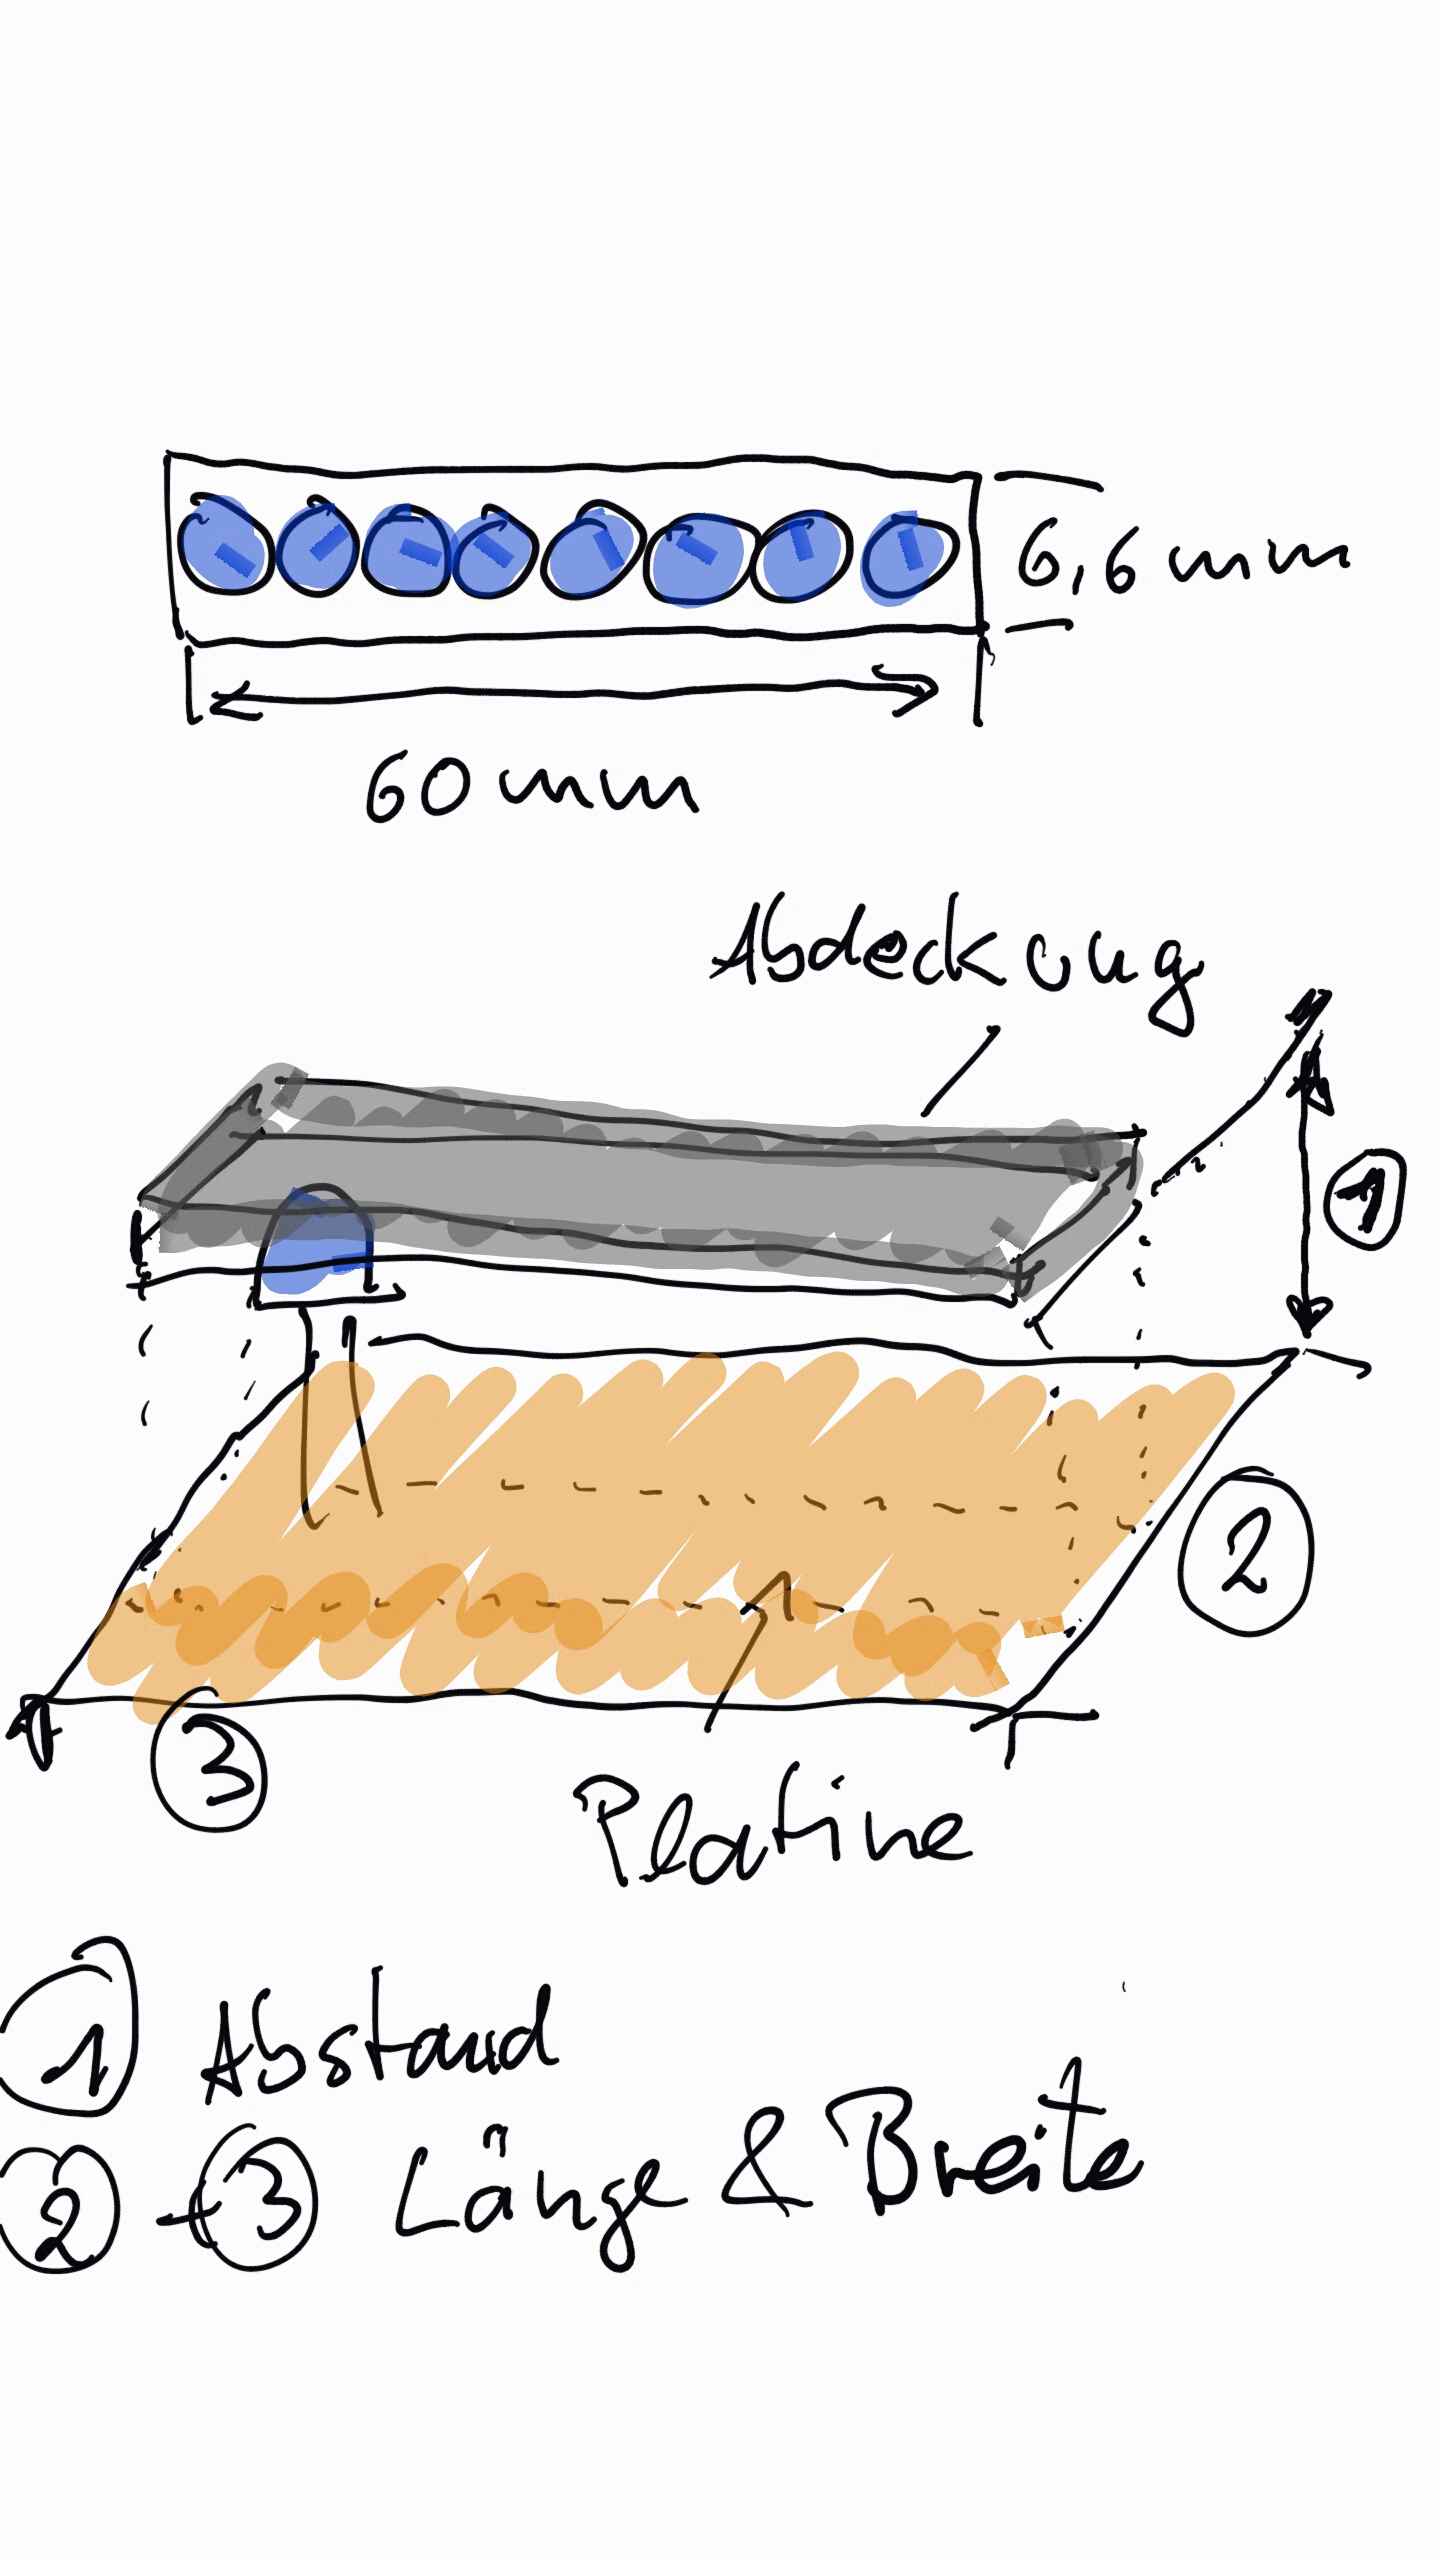 6,6 mm
60 mm
Abdeckung
1
2
3
Platine
1 Abstand
2 + 3 Länge & Breite